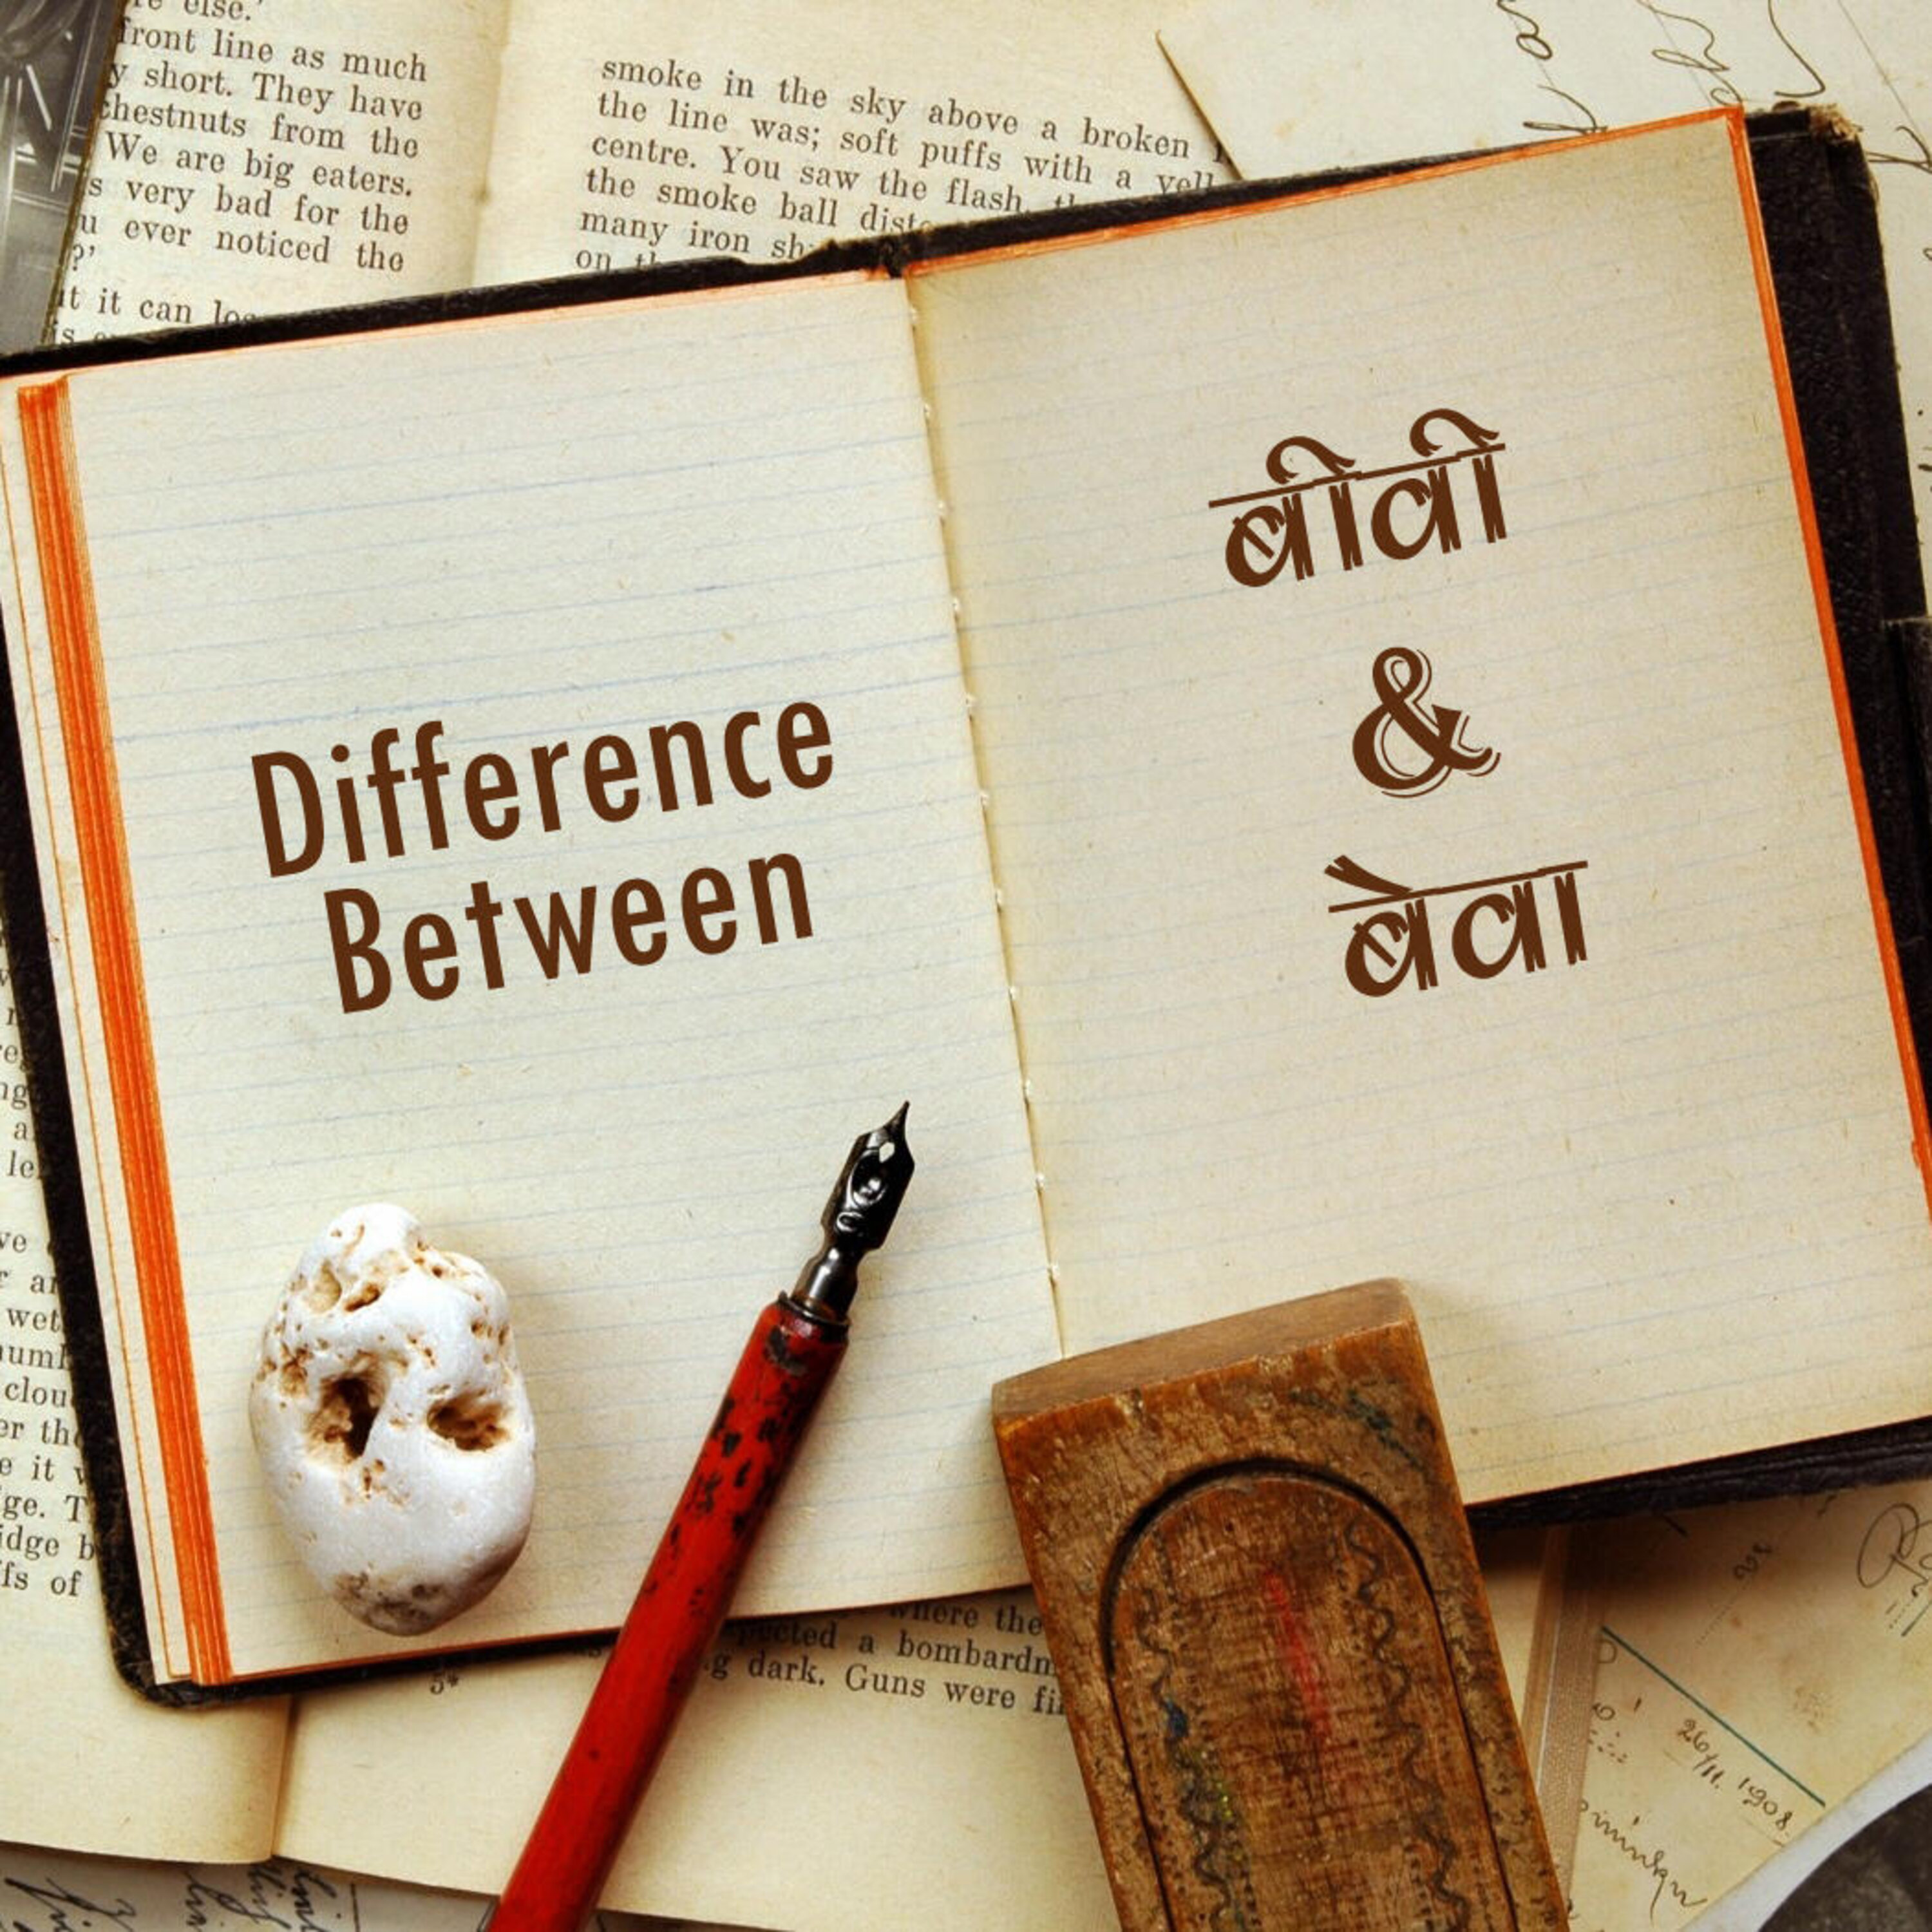 re else.'
front line as much
y short. They have
chestnuts from the
We are big eaters.
s very bad for the
u ever noticed the
?'
it it can
smoke in the sky above a broken
the line was; soft puffs with a
centre. You saw the flash
the smoke ball
many iron
on
Difference
Between
बीवी
&
बेवा
le
wet
er
it
ge. T
idge b
fs of
where the
a bombardm
g dark. Guns were
5*
26/11. 1908.